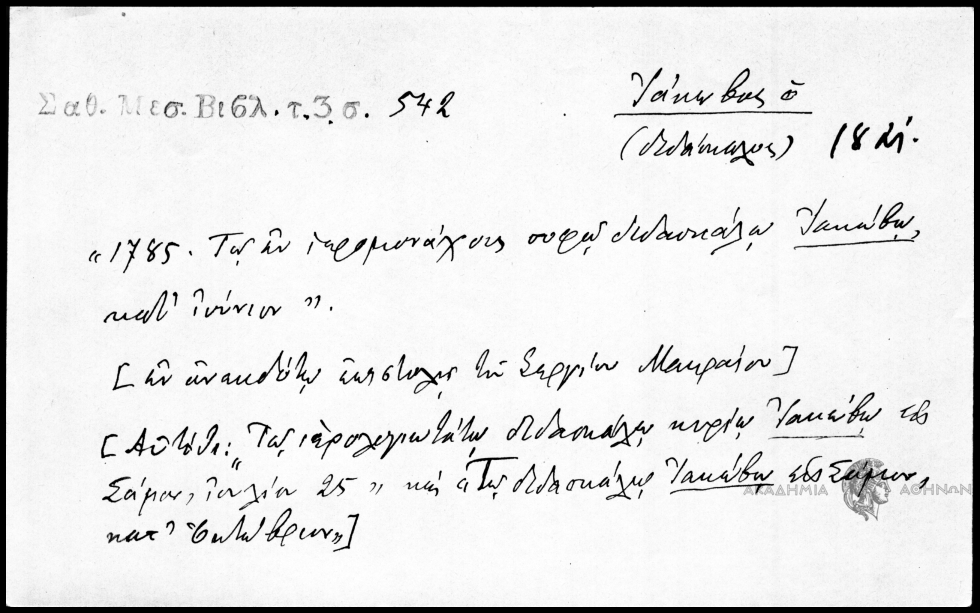 Σαθ. Μεσ. Βιβλ. τ. 3 σ. 542
Ἰάκωβος ὁ
(διδάσκαλος) 182
«1785. Τῷ ἐν ἱερομονάχοις σοφῷ διδασκάλῳ Ἰακώβῳ,
κατ' Ἰούνιον».
[ἐν ἀνεκδότῳ ἐπιστολῇ τοῦ Σεργίου Μακραίου]
[Αὐτόθι: "Τῷ ἱερολογιωτάτῳ διδασκάλῳ κυρίῳ Ἰακώβῳ εἰς
Σάμον, Ἰουλίου 25" καὶ «Τῷ διδασκάλῳ Ἰακώβῳ εἰς Σάμον,
κατ' Ὀκτώβριον»]
ΑΚΑΔΗΜΙΑ ΑΘΗΝΩΝ